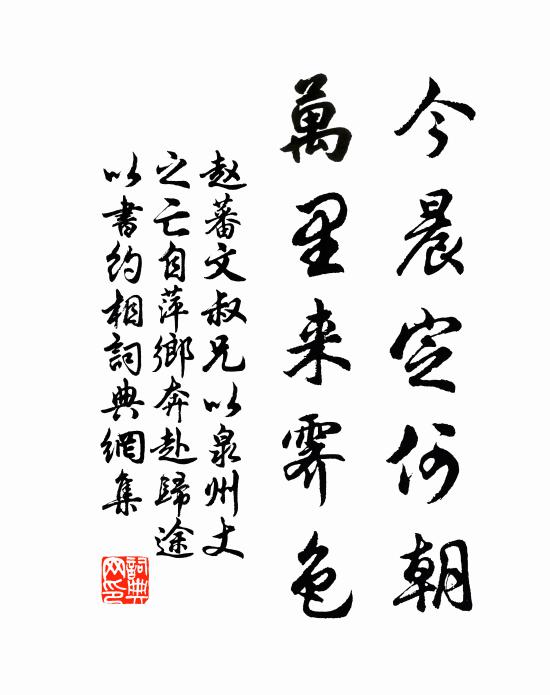 今晨定何朝
萬里来霽色
赵蕃文叔兄以泉州丈
之亡自萍鄉奔赴歸途
以書約相詞典網集
詞典网印